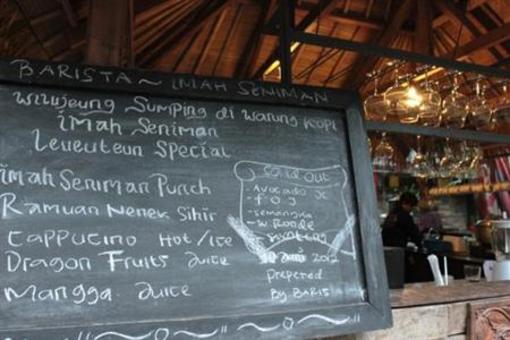 BARISTA ~ IMAH SENIMAN
Wilujeung Sumping di Warung Kopi
Imah Seniman
Leuleuteun Special
Imah Seniman Punch
Ramuan Nenek Sihir
Cappucino Hot/Ice
Dragon Fruits Juice
Mangga Juice
Sold Out
Avocado Jc
- F O J
- Semangka
- W. Ronde
2012
Prepered
By Baris